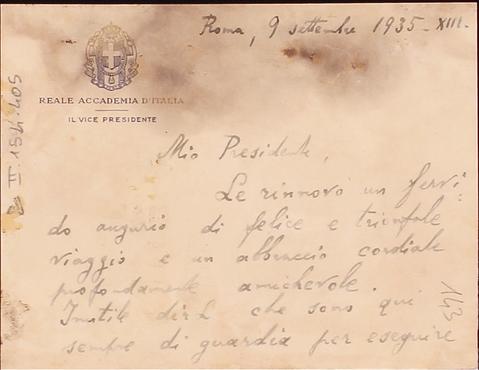 Roma, 9 settembre 1935-XIII.
REALE ACCADEMIA D'ITALIA
IL VICE PRESIDENTE
II.154.405
Mio Presidente,
Le rinnovo un fervi-
do augurio di felice e trionfale
viaggio e un abbraccio cordiale
profondamente amichevole.
Inutile dirLe che sono qui
sempre di guardia per eseguire
143